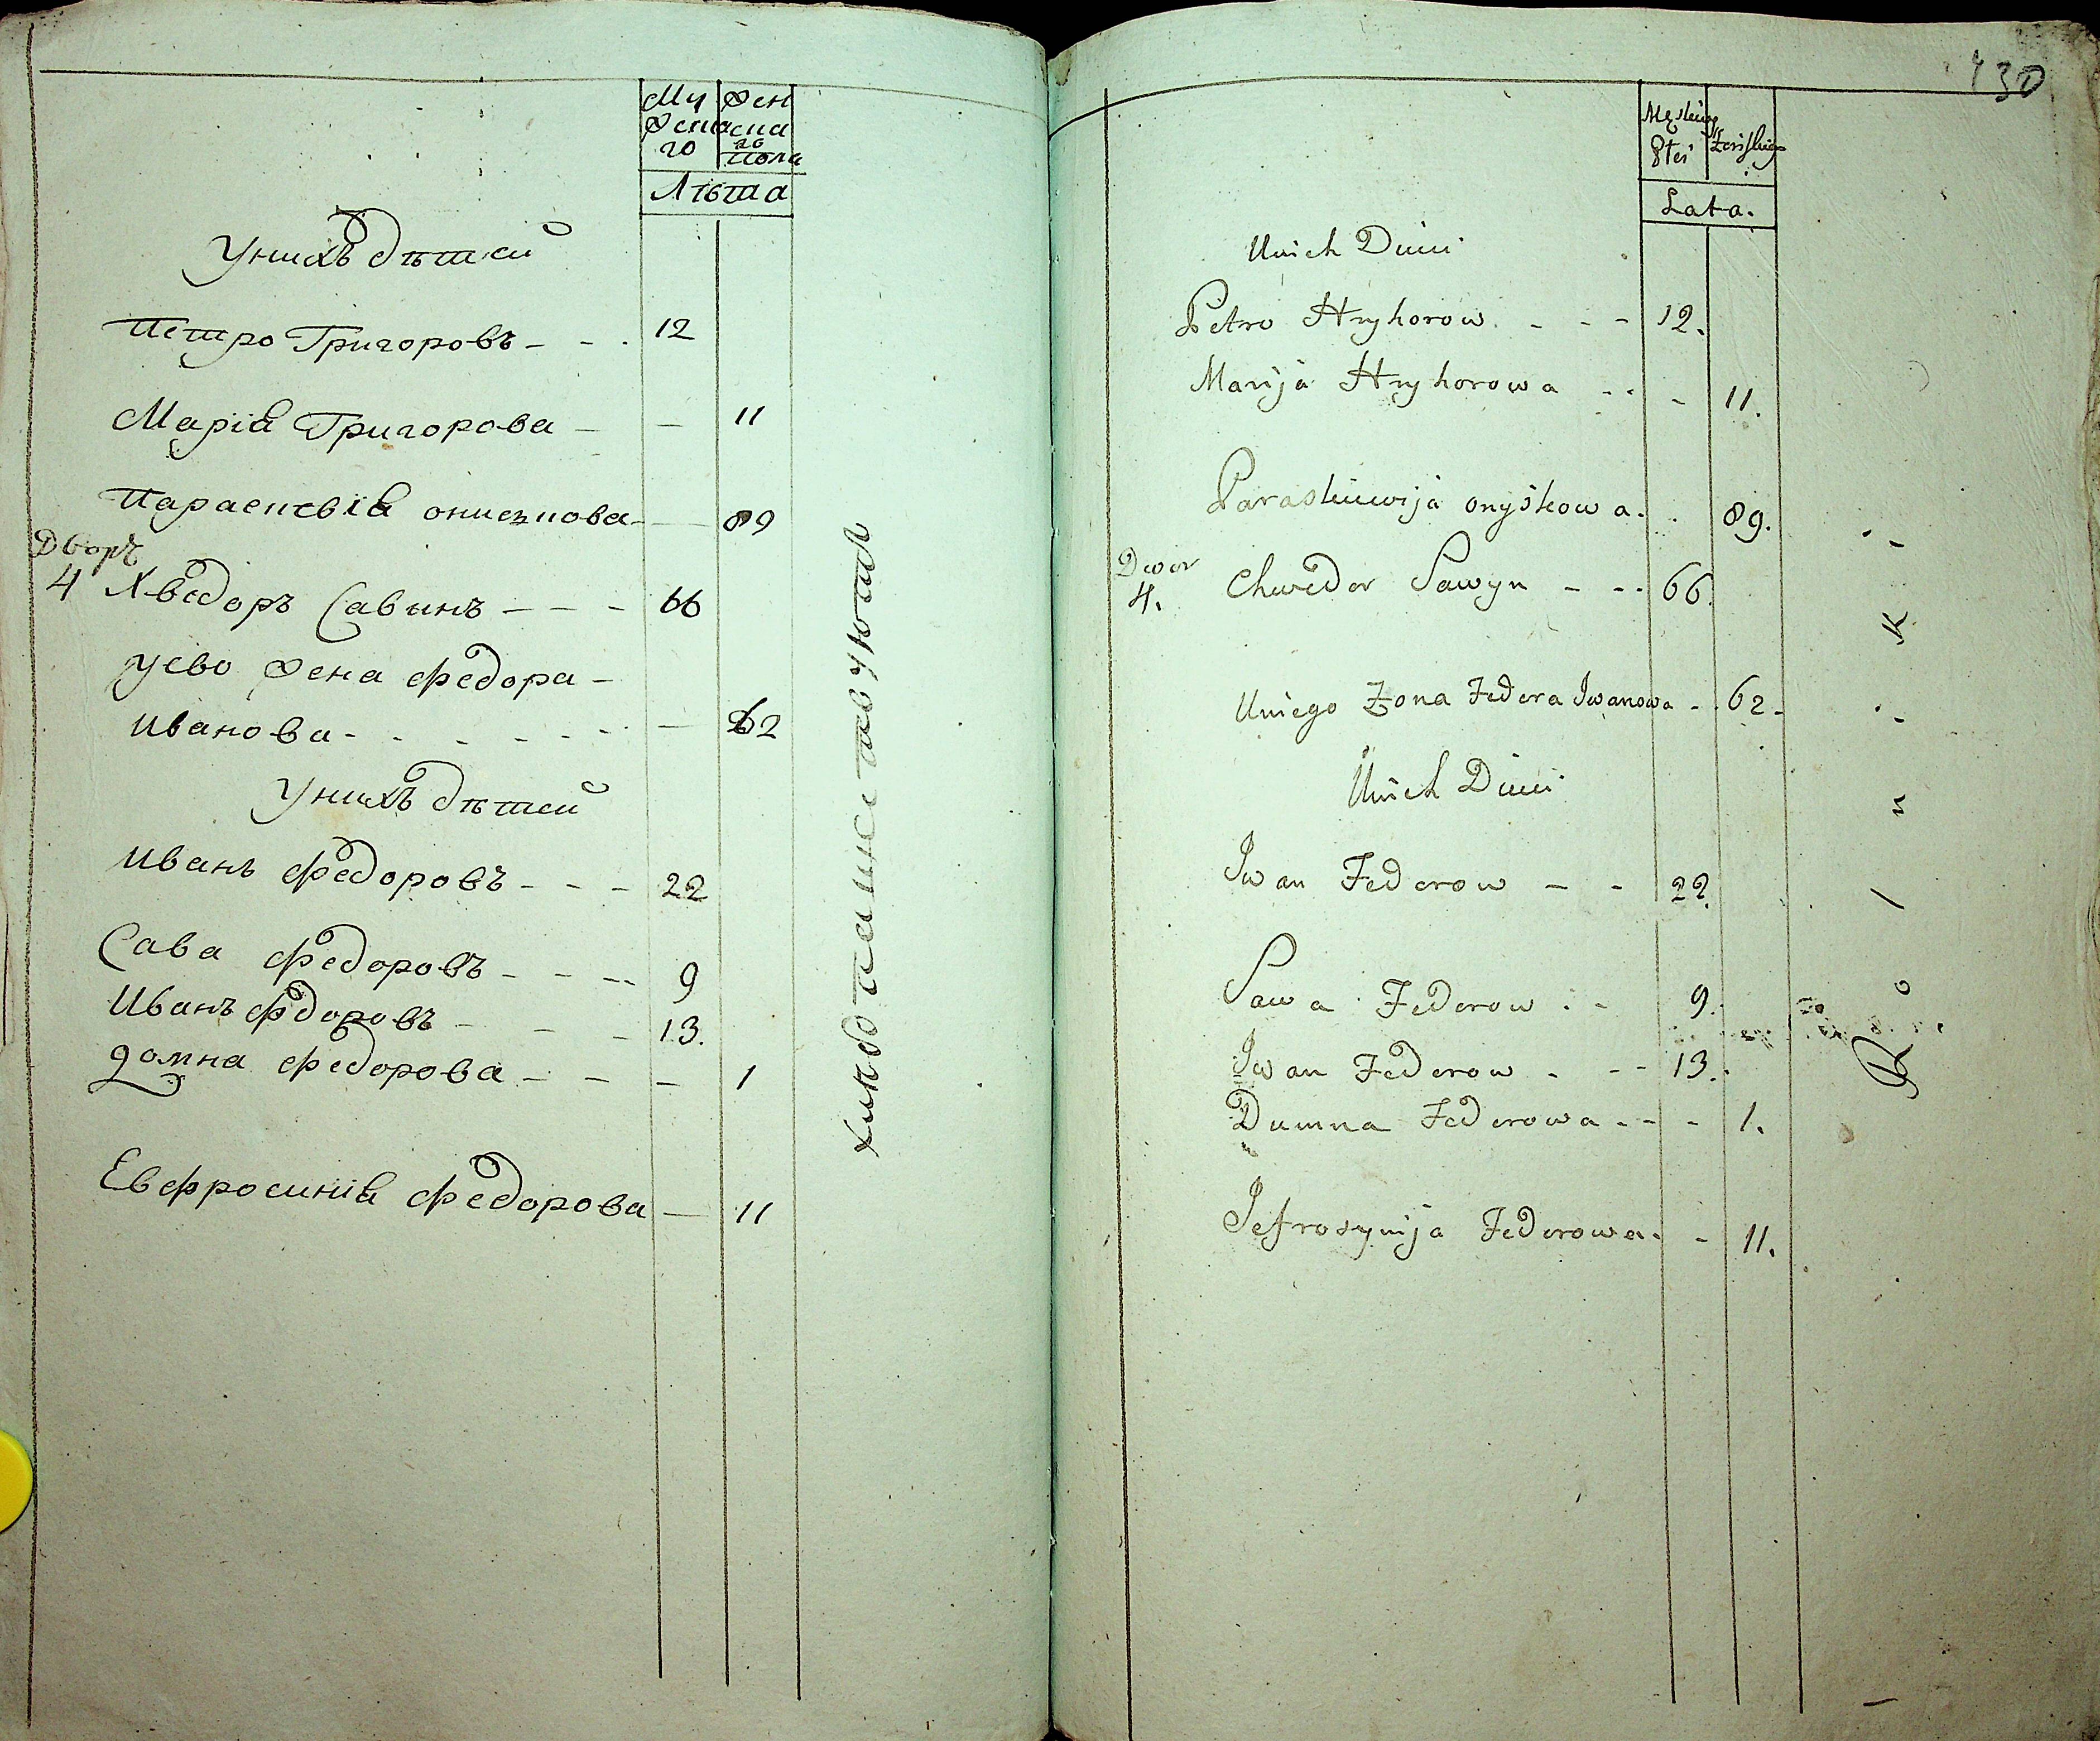 Му жеска го
Жен ска го пола
Лѣта
У нихъ дѣтей
Петро Григоровъ - - . 12
Маріа Григорова - — 11
Параскевіа онискова - — 89
Дворъ
4 Хведоръ Савинъ - - - 66
у ево жена Федора -
Иванова - - - - - - — 62
У нихъ дѣтей
Иванъ Федоровъ - - - 22
Сава Федоровъ - - - 9
Иванъ Фдоровъ - - - 13.
домна Федорова - - - 1
Евфросиніа Федорова — 11
430
Męskiey Płci
Żeńskiey
Lata.
Unich Dzieci
Petro Hryhorow. - - - 12.
Marija Hryhorowa - - - 11.
Paraskiewija onyśkowa. . 89.
Dwor
4. Chwedor Sawyn - - - 66.
Uniego Żona Fedora Iwanowa - . 62 -
Unich Dzieci
Iwan Fedorow - - 22.
Sawa Fedorow . - 9.
Iwan Fedorow . - - 13.
Dumna Fedorowa - - - 1.
Jefrosynija Fedorowa. - 11.